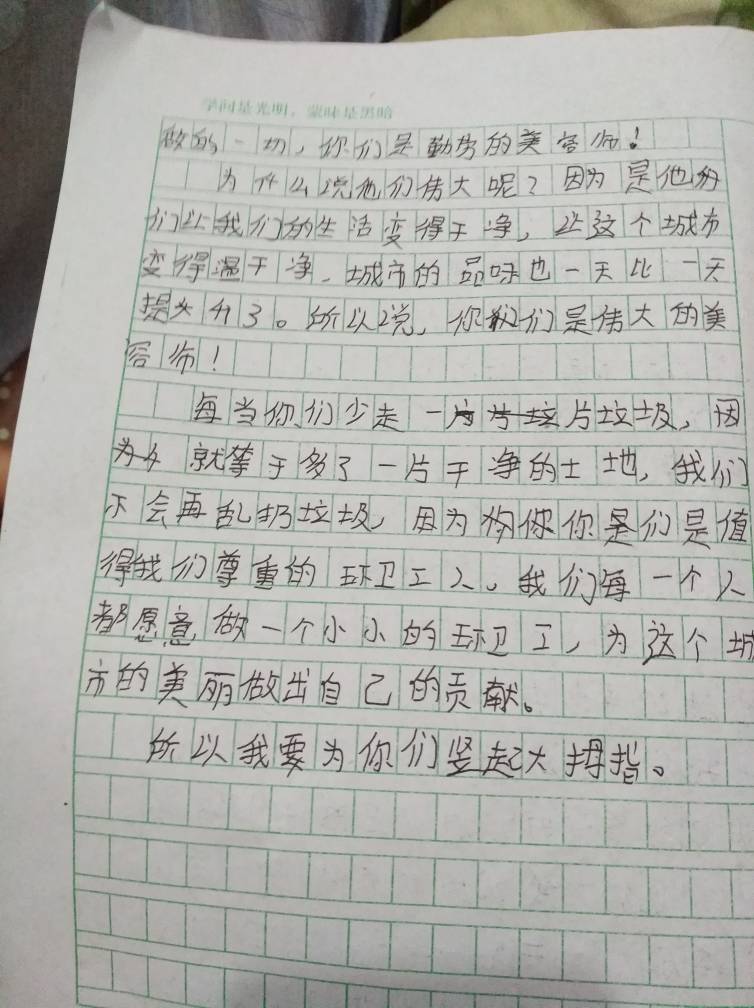 学问是光明，蒙昧是黑暗
做的一切，你们是勤劳的美容师！
为什么说他们伟大呢？因为是他
们让我们的生活变得干净，让这个城市
变得干净、城市的品味也一天比一天
提升了。所以说，你们是伟大的美
容师！
每当你们少走一片垃圾，因
为就等于多了一片干净的土地，我们
不会再乱扔垃圾，因为你你是们是值
得我们尊重的环卫工人。我们每一个人
都愿意做一个小小的环卫工，为这个城
市的美丽做出自己的贡献。
所以我要为你们竖起大拇指。